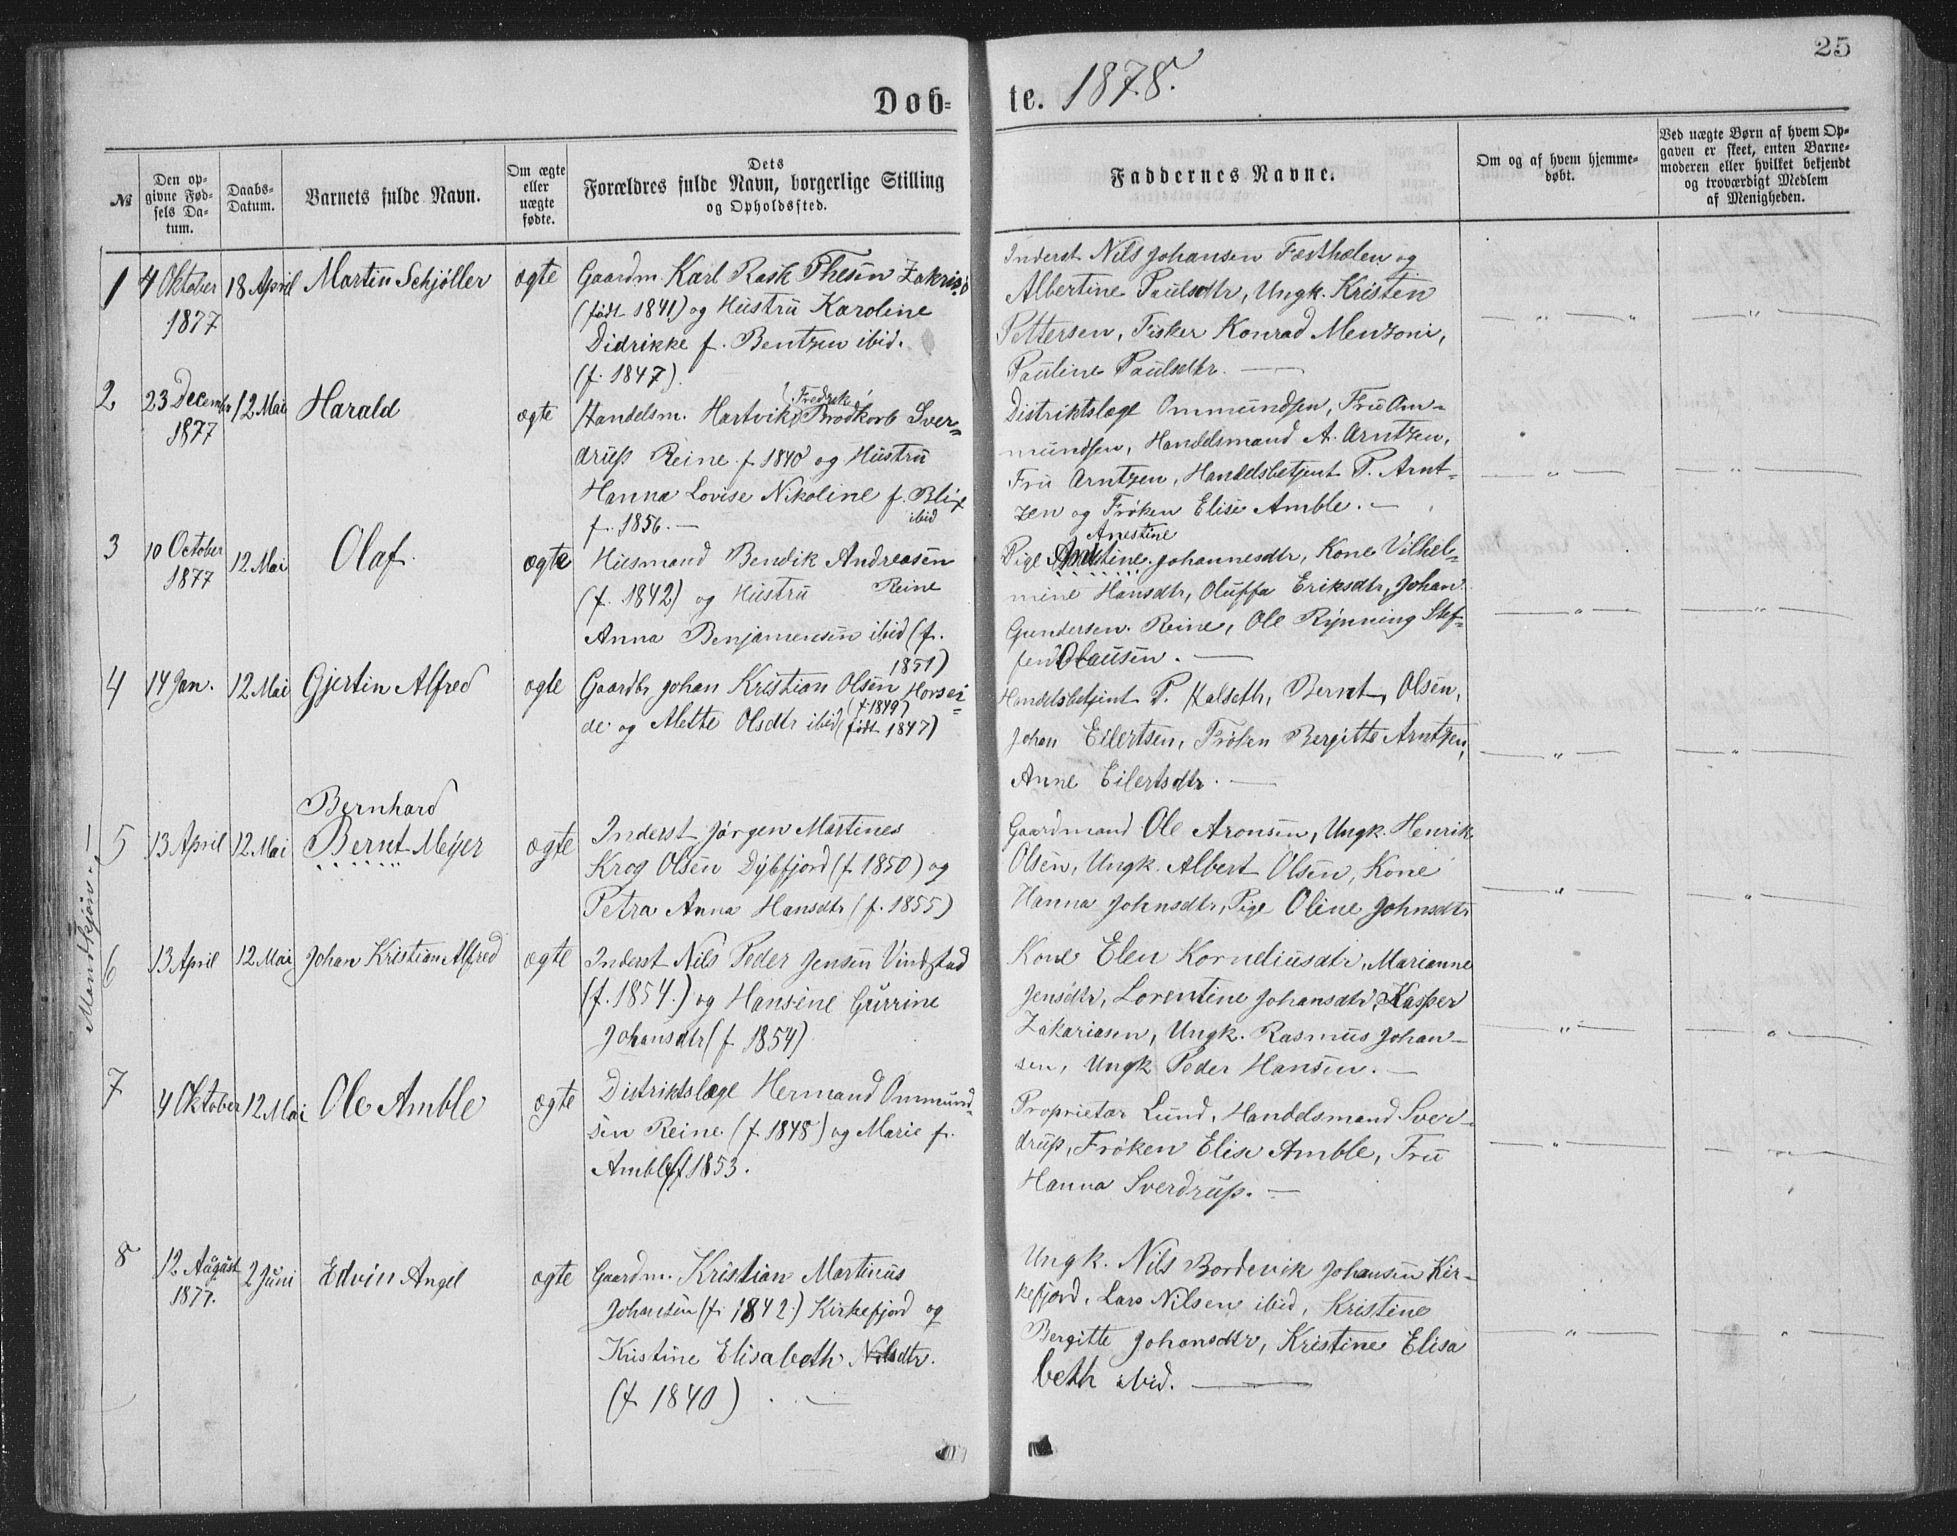 25
Døb- te. 1878.
№
Den op-
givne Fød-
sels Da-
tum.
Daabs-
Datum.
Barnets fulde Navn.
Om ægte
eller
uægte
fødte.
Dets
Forældres fulde Navn, borgerlige Stilling
og Opholdssted.
Faddernes Navne.
Om og af hvem hjemme-
døbt.
Ved uægte Børn af hvem Op-
gaven er skeet, enten Barne-
moderen eller hvilket bekjendt
og troværdigt Medlem
af Menigheden.
Mandkjøn.
1
4 Oktober
1877
18 April
Martin Schjøller
ægte
Gaardm. Karl Rask Thesen Zakrisø
(født 1841) og Hustru Karoline
Didrikke f. Bentzen ibid.
(f. 1847).
Inderst Nils Johansen Festhælen og
Albertine Paulsdtr, Ungk. Kristen
Pettersen, Fisker Konrad Menzoni,
Pauline Paulsdtr. —
— " — "
— " —
2
23 Decembr
1877
12 Mai
Harald
ægte
Fredrik
Handelsm. Hartvik Brodkorb Sver-
drup Reine f. 1840 og Hustru
Hanna Lovise Nikoline f. Blix
f. 1856. — ibid
Distriktslæge Ommundsen, Fru Om-
mundsen, Handelsmand A. Arntzen,
Fru Arntzen, Handelsbetjent P. Arnt-
zen og Frøken Elise Amble. —
— " —
— " —
3
10 October
1877
12 Mai
Olaf
ægte
Husmand Bendik Andreasen
(f. 1842) og Hustru Reine
Anna Benjamensen ibid (f.
1851)
Anestine
Pige Johannesdtr, Kone Vilhel-
mine Hansdtr, Oluffa Eriksdtr, Johan
Gundersen Reine, Ole Rynning Stef-
fen Olausen. —
— " —
— " —
4
14 Jan.
12 Mai
Gjertin Alfred
ægte
Gaardbr Johan Kristian Olsen Horsei-
(f. 1849)
de og Alette Olsdtr ibid (født 1847)
Handelsbetjent P. Halseth, Bernt Olsen,
Johan Eilertsen, Frøken Bergitte Arntzen,
Anne Eilertsdtr. —
— " —
— " —
5
13 April
12 Mai
Bernhard
Bernt Meyer
ægte
Inderst Jørgen Martines
Krog Olsen Dybfjord (f. 1850) og
Petra Anna Hansdtr (f. 1855)
Gaardmand Ole Aronsen, Ungk. Henrik
Olsen, Ungk. Albert Olsen, Kone
Hanna Johnsdtr, Pige Oline Johnsdtr
— " —
— " —
6
13 April
12 Mai
Johan Kristian Alfred
ægte
Inderst Nils Peder Jensen Vindstad
(f. 1854.) og Hansine Gurrine
Johansdtr (f. 1854)
Kone Elen Korneliusdtr, Marianne
Jensdtr, Lorentine Johansdtr, Kasper
Zakariasen, Ungk. Rasmus Johan-
sen, Ungk Peder Hansen. —
— " —
— " —
7
4 Oktober
12 Mai
Ole Amble
ægte
Distriktslæge Hermand Ommund-
sen Reine (f. 1848) og Marie f.
Amble (f 1853.
Proprietær Lund, Handelsmand Sver-
drup, Frøken Elise Amble, Fru
Hanna Sverdrup. —
— " —
— " —
8
12 August
1877.
2 Juni
Edvin Angel
ægte
Gaardm. Kristian Martinus
Johansen (f. 1842.) Kirkefjord og
Kristine Elisabeth Nilsdtr.
(f. 1840) —
Ungk. Nils Bordevik Johansen Kir-
kefjord, Lars Nilsen ibid, Kristine
Bergitte Johansdtr, Kristine Elisa
beth ibid. —
— " —
— " —